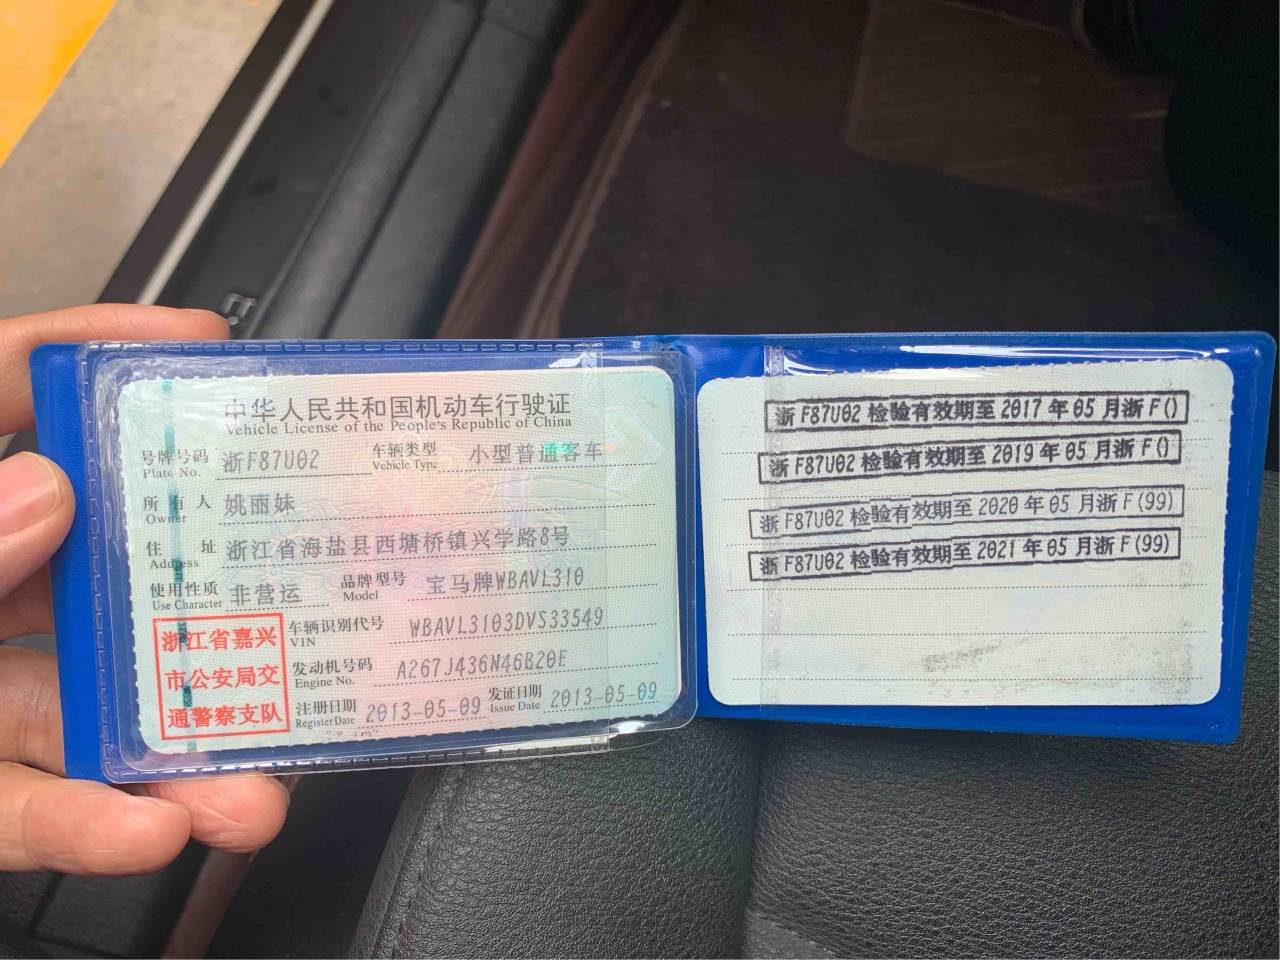 中华人民共和国机动车行驶证
Vehicle License of the People's Republic of China
号牌号码 浙F87U02 车辆类型 小型普通客车
Plate No. Vehicle Type
所有人 姚丽妹
Owner
住址 浙江省海盐县西塘桥镇兴学路8号
Address
使用性质 非营运 品牌型号 宝马牌WBAVL310
Use Character Model
浙江省嘉兴
市公安局交
通警察支队
车辆识别代号 WBAVL3103DVS33549
VIN
发动机号码 A267J436N46B20E
Engine No.
注册日期 2013-05-09 发证日期 2013-05-09
Register Date Issue Date
浙F87U02检验有效期至2017年05月浙F()
浙F87U02检验有效期至2019年05月浙F()
浙F87U02检验有效期至2020年05月浙F(99)
浙F87U02检验有效期至2021年05月浙F(99)